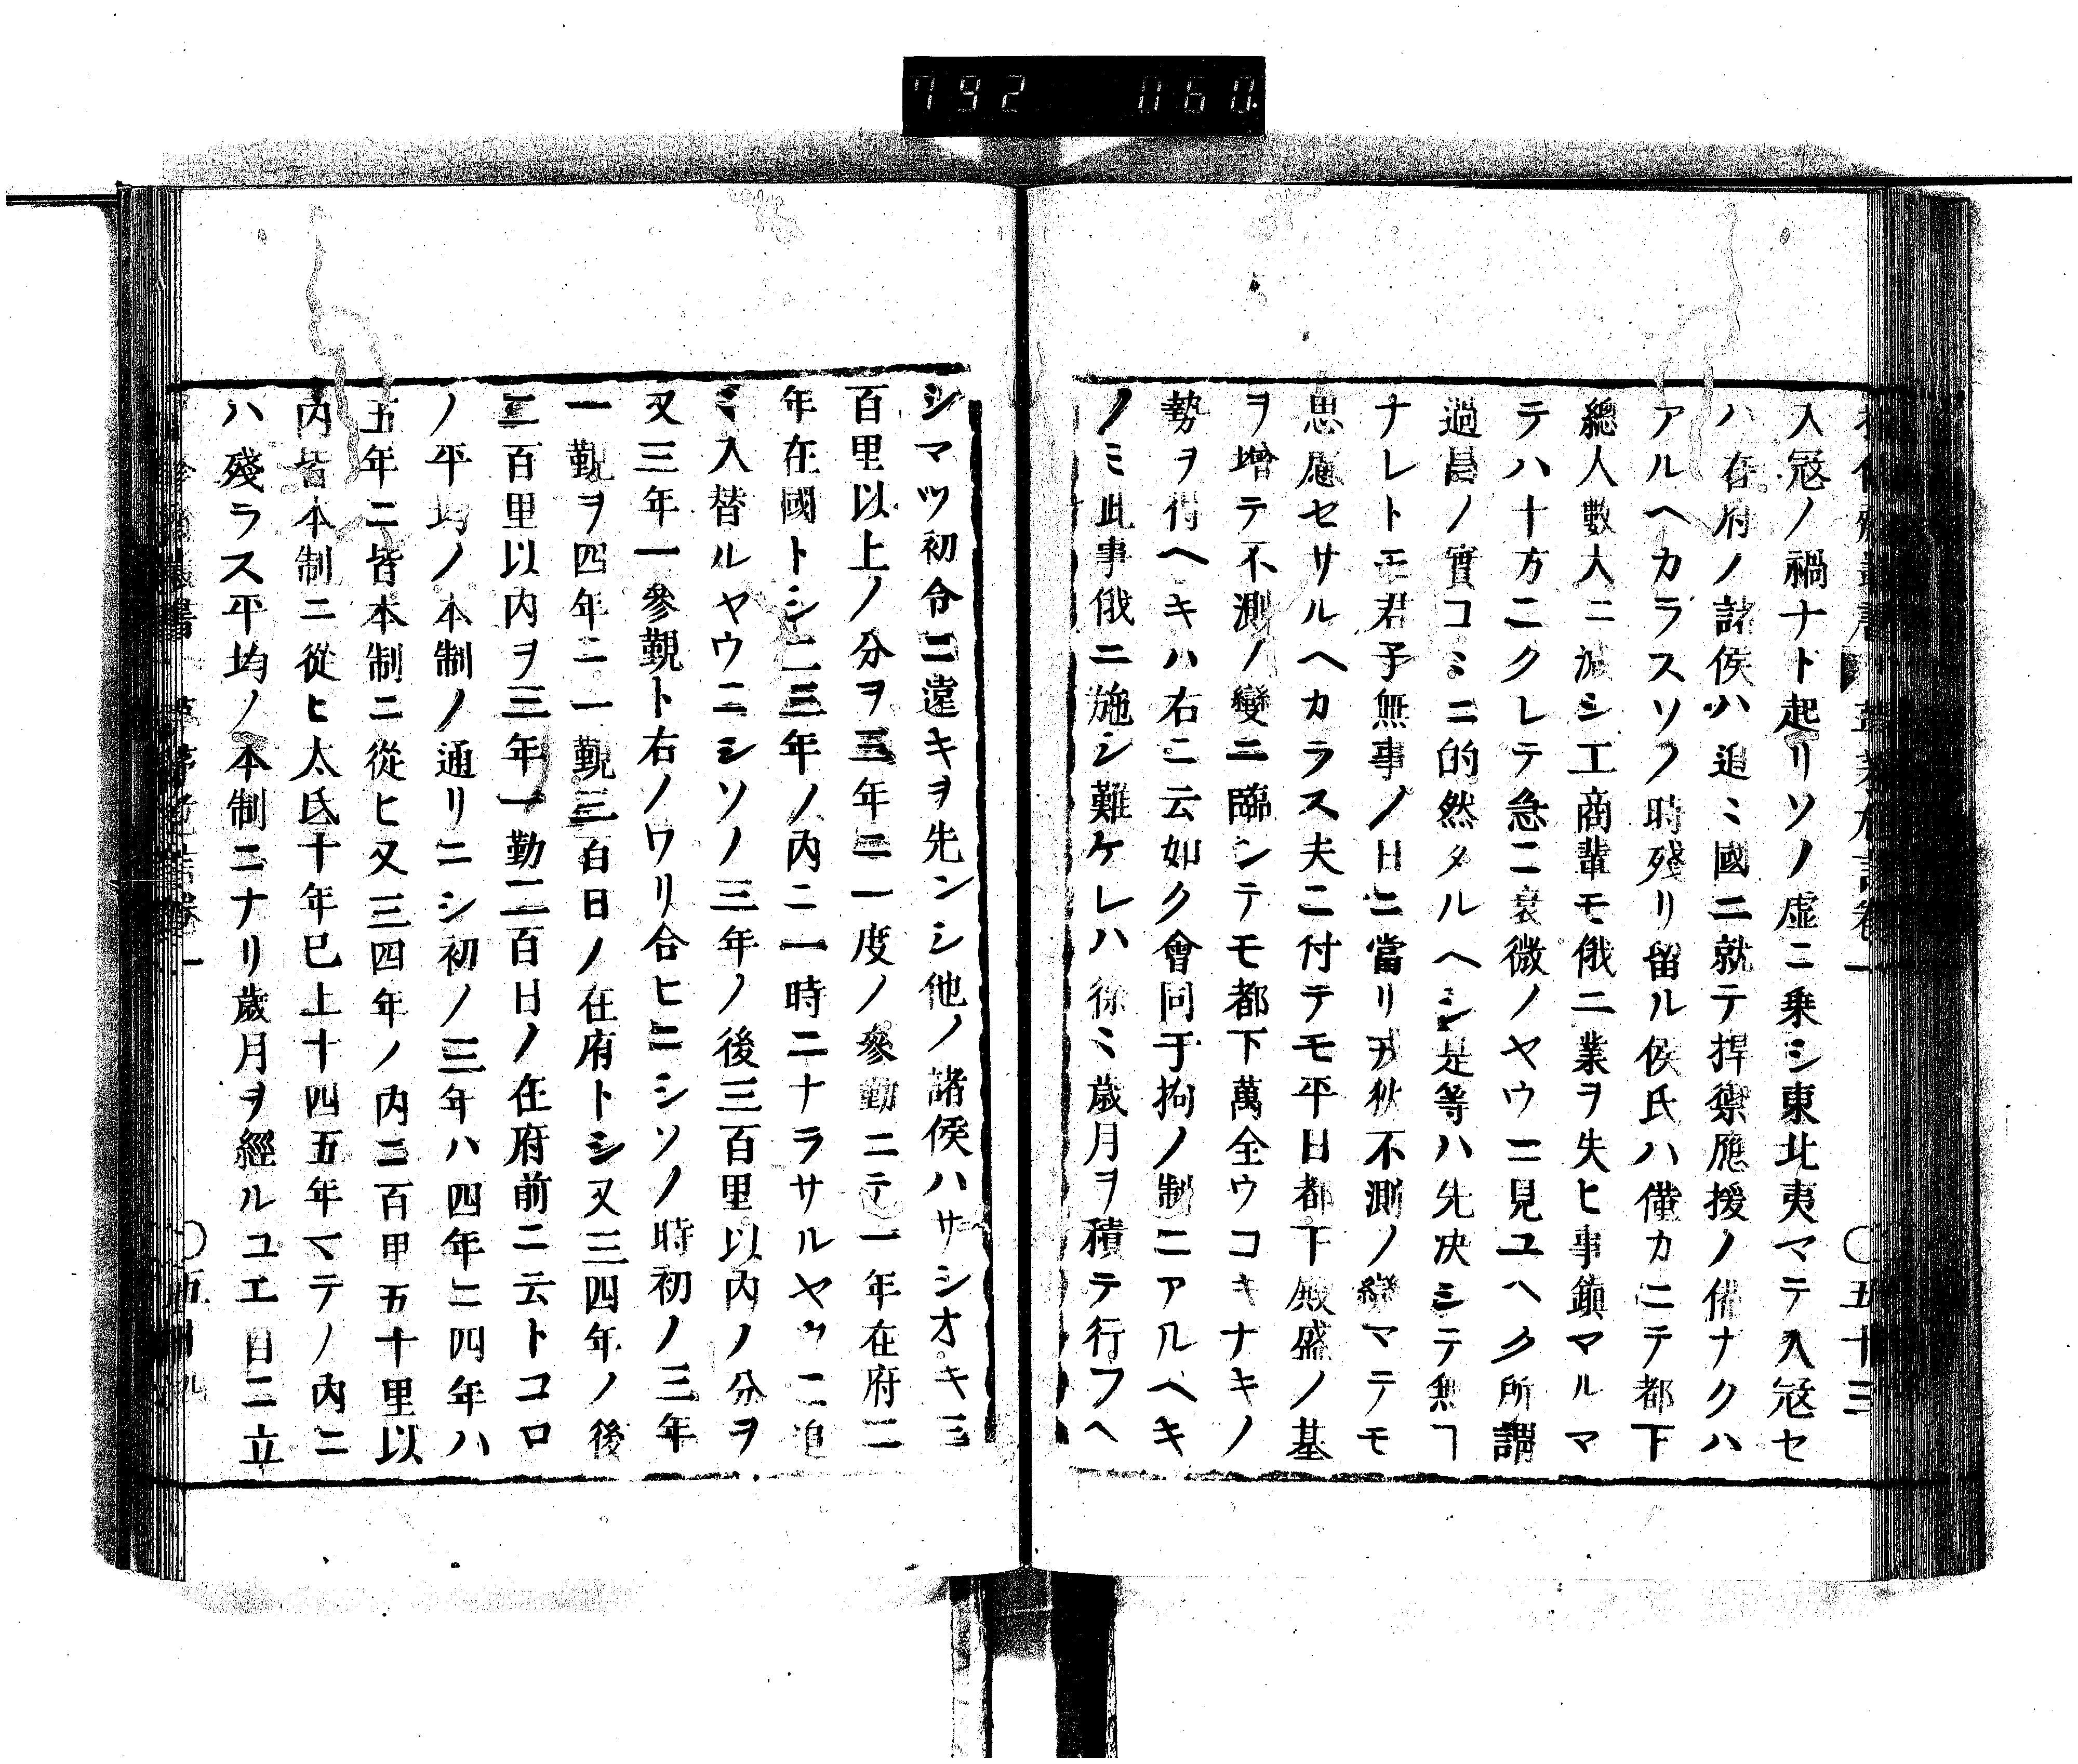 792 060
五十三
入冦ノ禍ナト起リソノ虚ニ乗シ東北夷マテ入冦セ
ハ在府ノ諸侯ハ追ミ國ニ就テ捍禦應援ノ備ナクハ
アルヘカラスソノ時殘リ留ル侯氏ハ僅カニテ都下
總人數大ニ減シ工商輩モ俄ニ業ヲ失ヒ事鎮マルマ
テハ十方ニクレテ急ニ衰微ノヤウニ見ユヘク所謂
過昌ノ實コミニ的然タルヘシ是等ハ先决シテ無ヿ
ナレトモ君子無事ノ日ニ當リ戎狄不測ノ變マテモ
思慮セサルヘカラス夫ニ付テモ平日都下殷盛ノ基
ヲ增テ不測ノ變ニ臨シテモ都下萬全ウコキナキノ
勢ヲ得ヘキハ右ニ云如ク會同于拘ノ制ニアルヘキ
ノミ此事俄ニ施シ難ケレハ徐ミ歳月ヲ積テ行フヘ
シマツ初令ニ遠キヲ先ンシ他ノ諸侯ハサシオキ三
百里以上ノ分ヲ三年ニ一度ノ參勤ニテ一年在府二
年在國トシ二三年ノ内ニ一時ニナラサルヤウニ追
ミ入替ルヤウニシソノ三年ノ後三百里以内ノ分ヲ
又三年一參覲ト右ノワリ合ヒニシソノ時初ノ三年
一覲ヲ四年ニ一覲三百日ノ在府トシ又三四年ノ後
二百里以内ヲ三年一勤二百日ノ在府前ニ云トコロ
ノ平均ノ本制ノ通リニシ初ノ三年ハ四年ニ四年ハ
五年ニ皆本制ニ從ヒ又三四年ノ内ニ百里五十里以
内皆本制ニ從ヒ大氐十年已上十四五年マテノ内ニ
ハ殘ラス平均ノ本制ニナリ歳月ヲ經ルユエ目ニ立